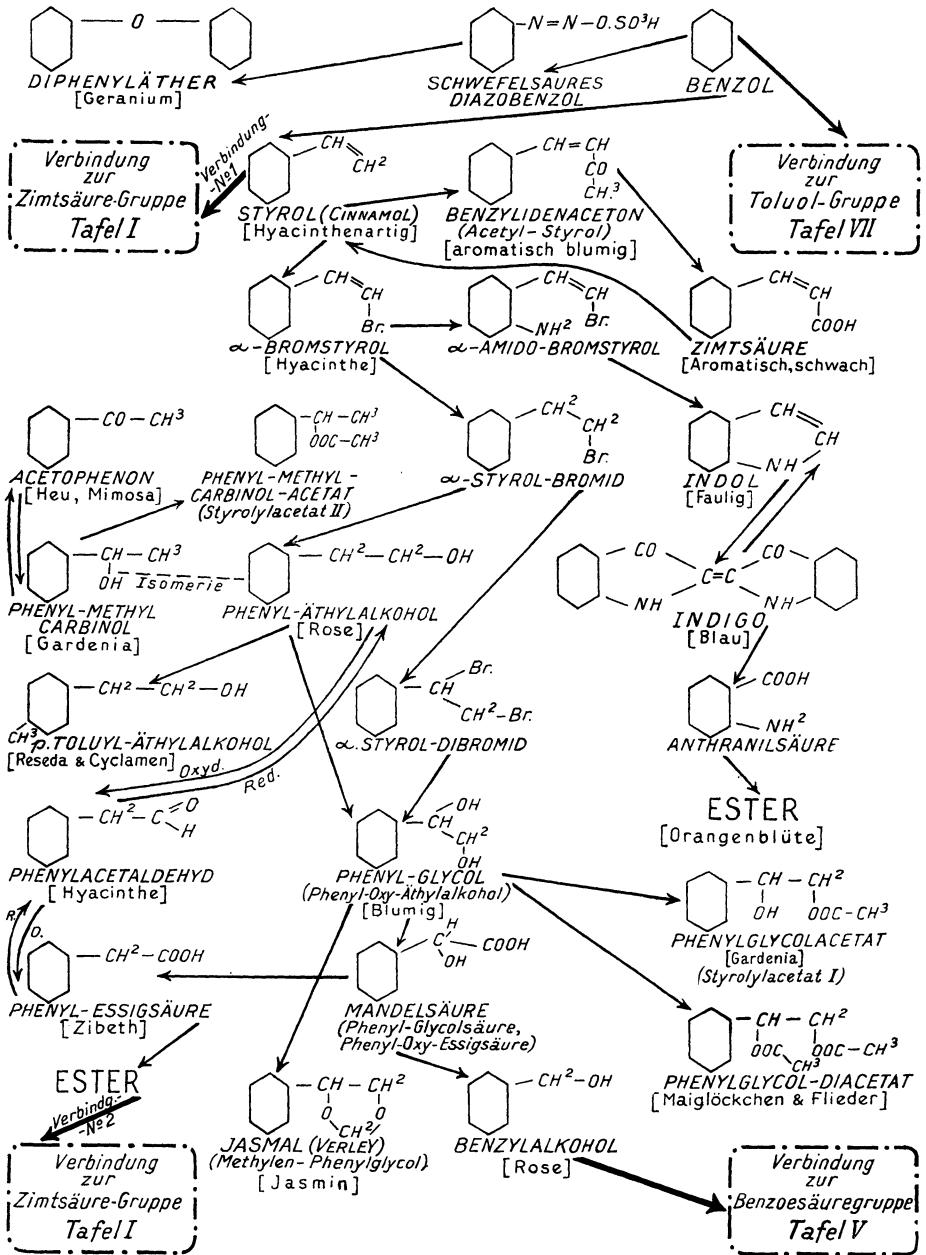 O
N=N-O.SO³H
DIPHENYLÄTHER
[Geranium]
SCHWEFELSAURES
DIAZOBENZOL
BENZOL
Verbindung
zur
Zimtsäure-Gruppe
Tafel I
Verbindung-
-Nº1
CH
CH²
STYROL (CINNAMOL)
[Hyacinthenartig]
CH=CH
CO
CH.³
BENZYLIDENACETON
(Acetyl-Styrol)
[aromatisch blumig]
Verbindung
zur
Toluol-Gruppe
Tafel VII
CH
CH
Br.
α-BROMSTYROL
[Hyacinthe]
CH
CH
Br.
NH²
α-AMIDO-BROMSTYROL
CH
CH
COOH
ZIMTSÄURE
[Aromatisch, schwach]
CO-CH³
ACETOPHENON
[Heu, Mimosa]
CH-CH³
OOC-CH³
PHENYL-METHYL-
CARBINOL-ACETAT
(Styrolylacetat II)
CH²
CH²
Br.
α-STYROL-BROMID
CH
CH
NH
INDOL
[Faulig]
CH-CH³
OH
Isomerie
PHENYL-METHYL
CARBINOL
[Gardenia]
CH²-CH²-OH
PHENYL-ÄTHYLALKOHOL
[Rose]
CO
CO
C=C
NH
NH
INDIGO
[Blau]
CH²-CH²-OH
CH³
p.TOLUYL-ÄTHYLALKOHOL
[Reseda & Cyclamen]
Oxyd.
Red.
Br.
CH
CH²-Br.
α.STYROL-DIBROMID
COOH
NH²
ANTHRANILSÄURE
ESTER
[Orangenblüte]
CH²-C
O
H
PHENYLACETALDEHYD
[Hyacinthe]
OH
CH
CH²
OH
PHENYL-GLYCOL
(Phenyl-Oxy-Äthylalkohol)
[Blumig]
CH-CH²
OH
OOC-CH³
PHENYLGLYCOLACETAT
[Gardenia]
(Styrolylacetat I)
R.
O.
CH²-COOH
PHENYL-ESSIGSÄURE
[Zibeth]
H
C
COOH
OH
MANDELSÄURE
(Phenyl-Glycolsäure,
Phenyl-Oxy-Essigsäure)
CH-CH²
OOC
CH³
OOC-CH³
PHENYLGLYCOL-DIACETAT
[Maiglöckchen & Flieder]
ESTER
Verbindg.-
-Nº2
CH-CH²
O
O
CH²
JASMAL (VERLEY)
(Methylen-Phenylglycol)
[Jasmin]
CH²-OH
BENZYLALKOHOL
[Rose]
Verbindung
zur
Zimtsäure-Gruppe
Tafel I
Verbindung
zur
Benzoesäuregruppe
Tafel V